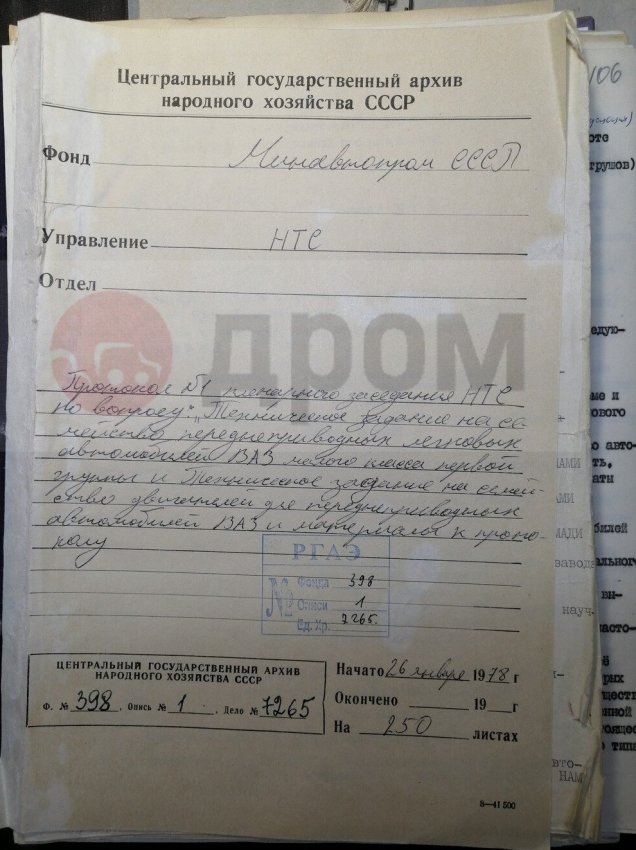 Центральный государственный архив
народного хозяйства СССР
Фонд Минавтопром СССР
Управление НТС
Отдел
ДРОМ
Протокол №1 пленарного заседания НТС
по вопросу: „Техническое задание на се-
мейство переднеприводных легковых
автомобилей ВАЗ малого класса первой
группы и Техническое задание на семей-
ство двигателей для переднеприводных
автомобилей ВАЗ и материалы к прото-
колу
РГАЭ
№ Фонда 398
Описи 1
Ед. Хр. 7265
ЦЕНТРАЛЬНЫЙ ГОСУДАРСТВЕННЫЙ АРХИВ
НАРОДНОГО ХОЗЯЙСТВА СССР
Ф. № 398, Опись № 1, Дело № 7265
Начато 26 января 1978 г
Окончено 19 г
На 250 листах
8—41 500
106
оте
трушов)
едую-
ме и
ового
о авто-
ть,
аты
НАМИ
АМИ
обилей
МАДИ
ального
завода
вы-
науч-
часто-
рых
уществ
нной
тоящее
о типа
авто-
НАМ